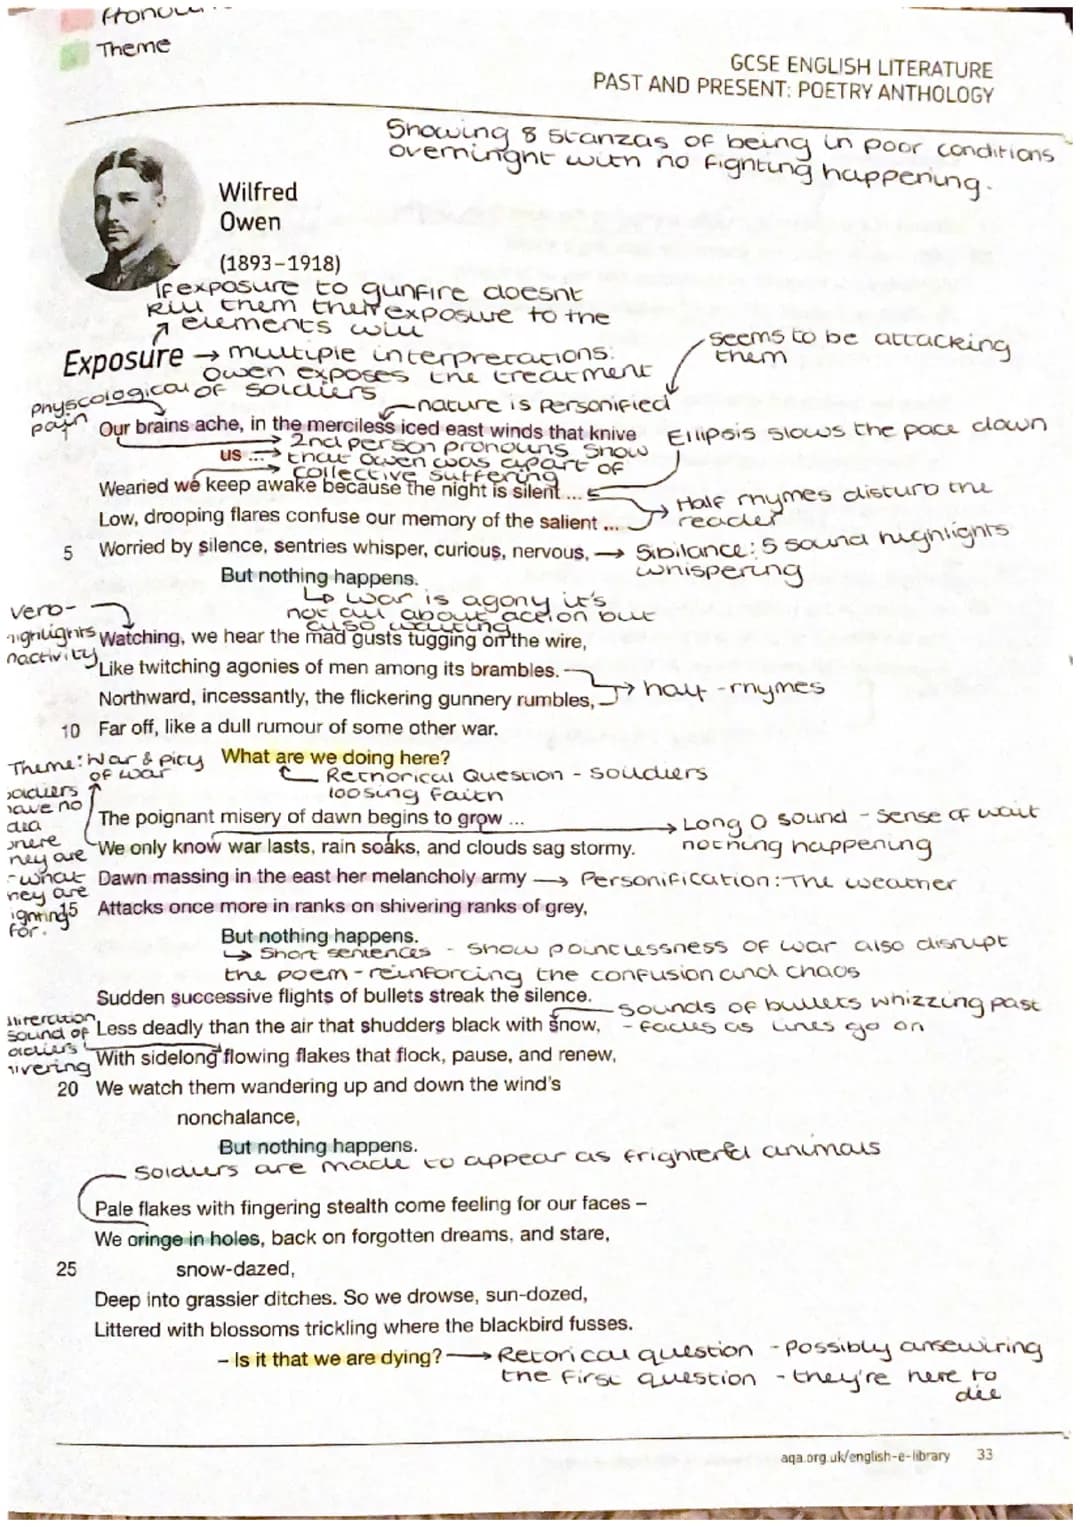 Theme
GCSE ENGLISH LITERATURE
PAST AND PRESENT: POETRY ANTHOLOGY
Showing 8 stanzas of being in poor conditions
overninght with no fighting happening.
Wilfred
Owen
(1893–1918)
If exposure to gunfire doesnt
kill them then exposure to the
elements will
Exposure → multiple interpretations:
Owen exposes the treatment
of soldiers
seems to be attacking
them
physcological
pain
nature is personified
Our brains ache, in the merciless iced east winds that knive
us ...
2nd person pronouns show
that Owen was apart of
collective suffering
Ellipsis slows the pace down
Wearied we keep awake because the night is silent ...
Low, drooping flares confuse our memory of the salient ...
Half rhymes disturb the
reader
5 Worried by silence, sentries whisper, curious, nervous,
→ Sibilance: S sound highlights
whispering
But nothing happens.
↳ war is agony it's
not all about action but
also waiting
verb-
highlights
inactivity
Watching, we hear the mad gusts tugging on the wire,
Like twitching agonies of men among its brambles.
Northward, incessantly, the flickering gunnery rumbles,
→ half-rhymes
10 Far off, like a dull rumour of some other war.
What are we doing here?
Rethorical Question - souldiers
loosing faith
Theme: War & pity
of war
soldiers
have no
idea
where
they are
- what
they are
fighting
for.
The poignant misery of dawn begins to grow ...
→ Long O sound - sense of wait
nothing happening
We only know war lasts, rain soaks, and clouds sag stormy.
Dawn massing in the east her melancholy army → Personification: The weather
15 Attacks once more in ranks on shivering ranks of grey,
But nothing happens.
↳ Short sentences - show pointlessness of war also disrupt
the poem - reinforcing the confusion and chaos
Sudden successive flights of bullets streak the silence.
Sounds of bullets whizzing past
- fades as lines go on
Less deadly than the air that shudders black with snow,
sound of
With sidelong flowing flakes that flock, pause, and renew,
20 We watch them wandering up and down the wind's
nonchalance,
But nothing happens.
Soldiers are made to appear as frightened animals
Pale flakes with fingering stealth come feeling for our faces –
We cringe in holes, back on forgotten dreams, and stare,
25 snow-dazed,
Deep into grassier ditches. So we drowse, sun-dozed,
Littered with blossoms trickling where the blackbird fusses.
– Is it that we are dying? → Retorical question - Possibly answering
the first question - they're here to
die
aqa.org.uk/english-e-library 33